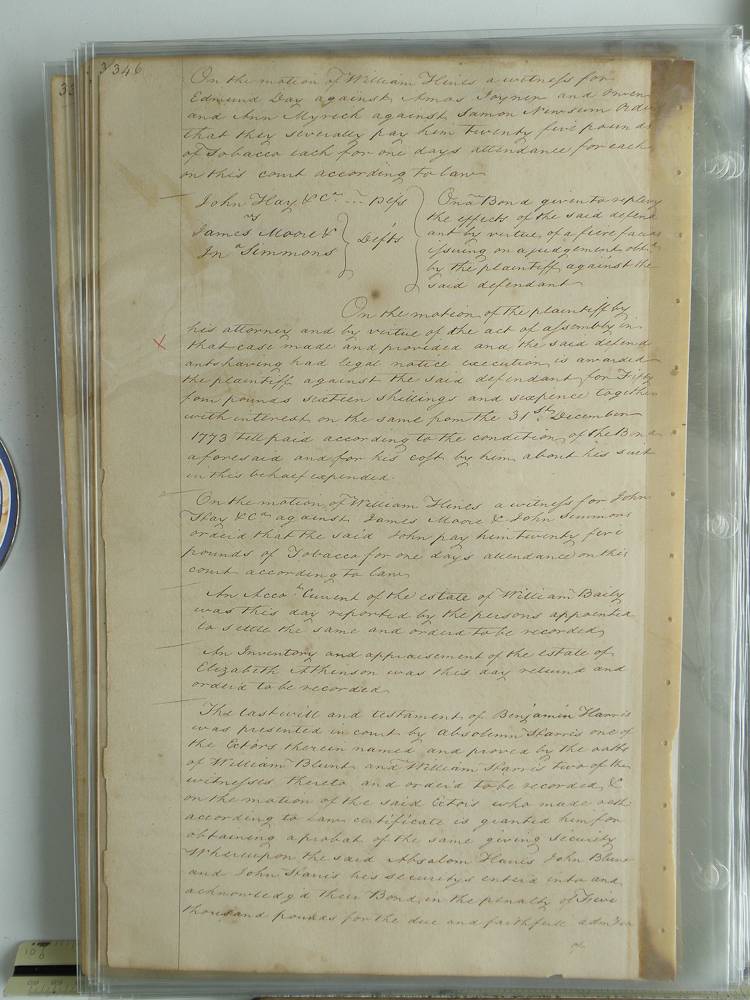 346
On the motion of William Hines a witness for
Edmund Day against Amos Joyner and Owen
and Ann Myrick against Samon Newsum Orde
that they severally pay him twenty five pounds
of Tobacco each for one days attendance for each
on this court according to law
John Hay & Co
vs
James Moore &
Jno Simmons
Defts
On a Bond given to replevy
the effects of the said defend
ant by virtue of a fiere facias
issuing on a judgement obtd
by the plaintiff against the
said defendant
On the motion of the plaintiff by
his attorney and by virtue of the act of assembly in
that case made and provided and the said defend
ants having had legal notice execution is awarded
the plaintiff against the said defendant for Fifty
four pounds sixteen shillings and sixpence together
with interest on the same from the 31st December
1773 till paid according to the condition of the Bond
aforesaid and for his cost by him about his suit
in this behalf expended
On the motion of William Hines a witness for John
Hay & Co against James Moore & John Simmons
orderd that the said John pay him twenty five
pounds of Tobacco for one days attendance on this
court according to law
An Accot Current of the estate of William Baily
was this day reported by the persons appointed
to settle the same and orderd to be recorded
An Inventory and appraisement of the estate of
Elizabeth Atkinson was this day returnd and
orderd to be recorded
The last will and testament of Benjamin Harris
was presented in court by Absolemn Harris one of
the Ectors therein named and proved by the oaths
of William Blunt and William Harris two of the
witnesses thereto and orderd to be recorded &
on the motion of the said Ectors who made oath
according to law certificate is granted him for
obtaining a probat of the same giving security
Whereupon the said Absalom Harris John Blunt
and John Harris his securitys enterd into and
acknowledgd their Bond in the penalty of
thousand pounds for the due and faithfull